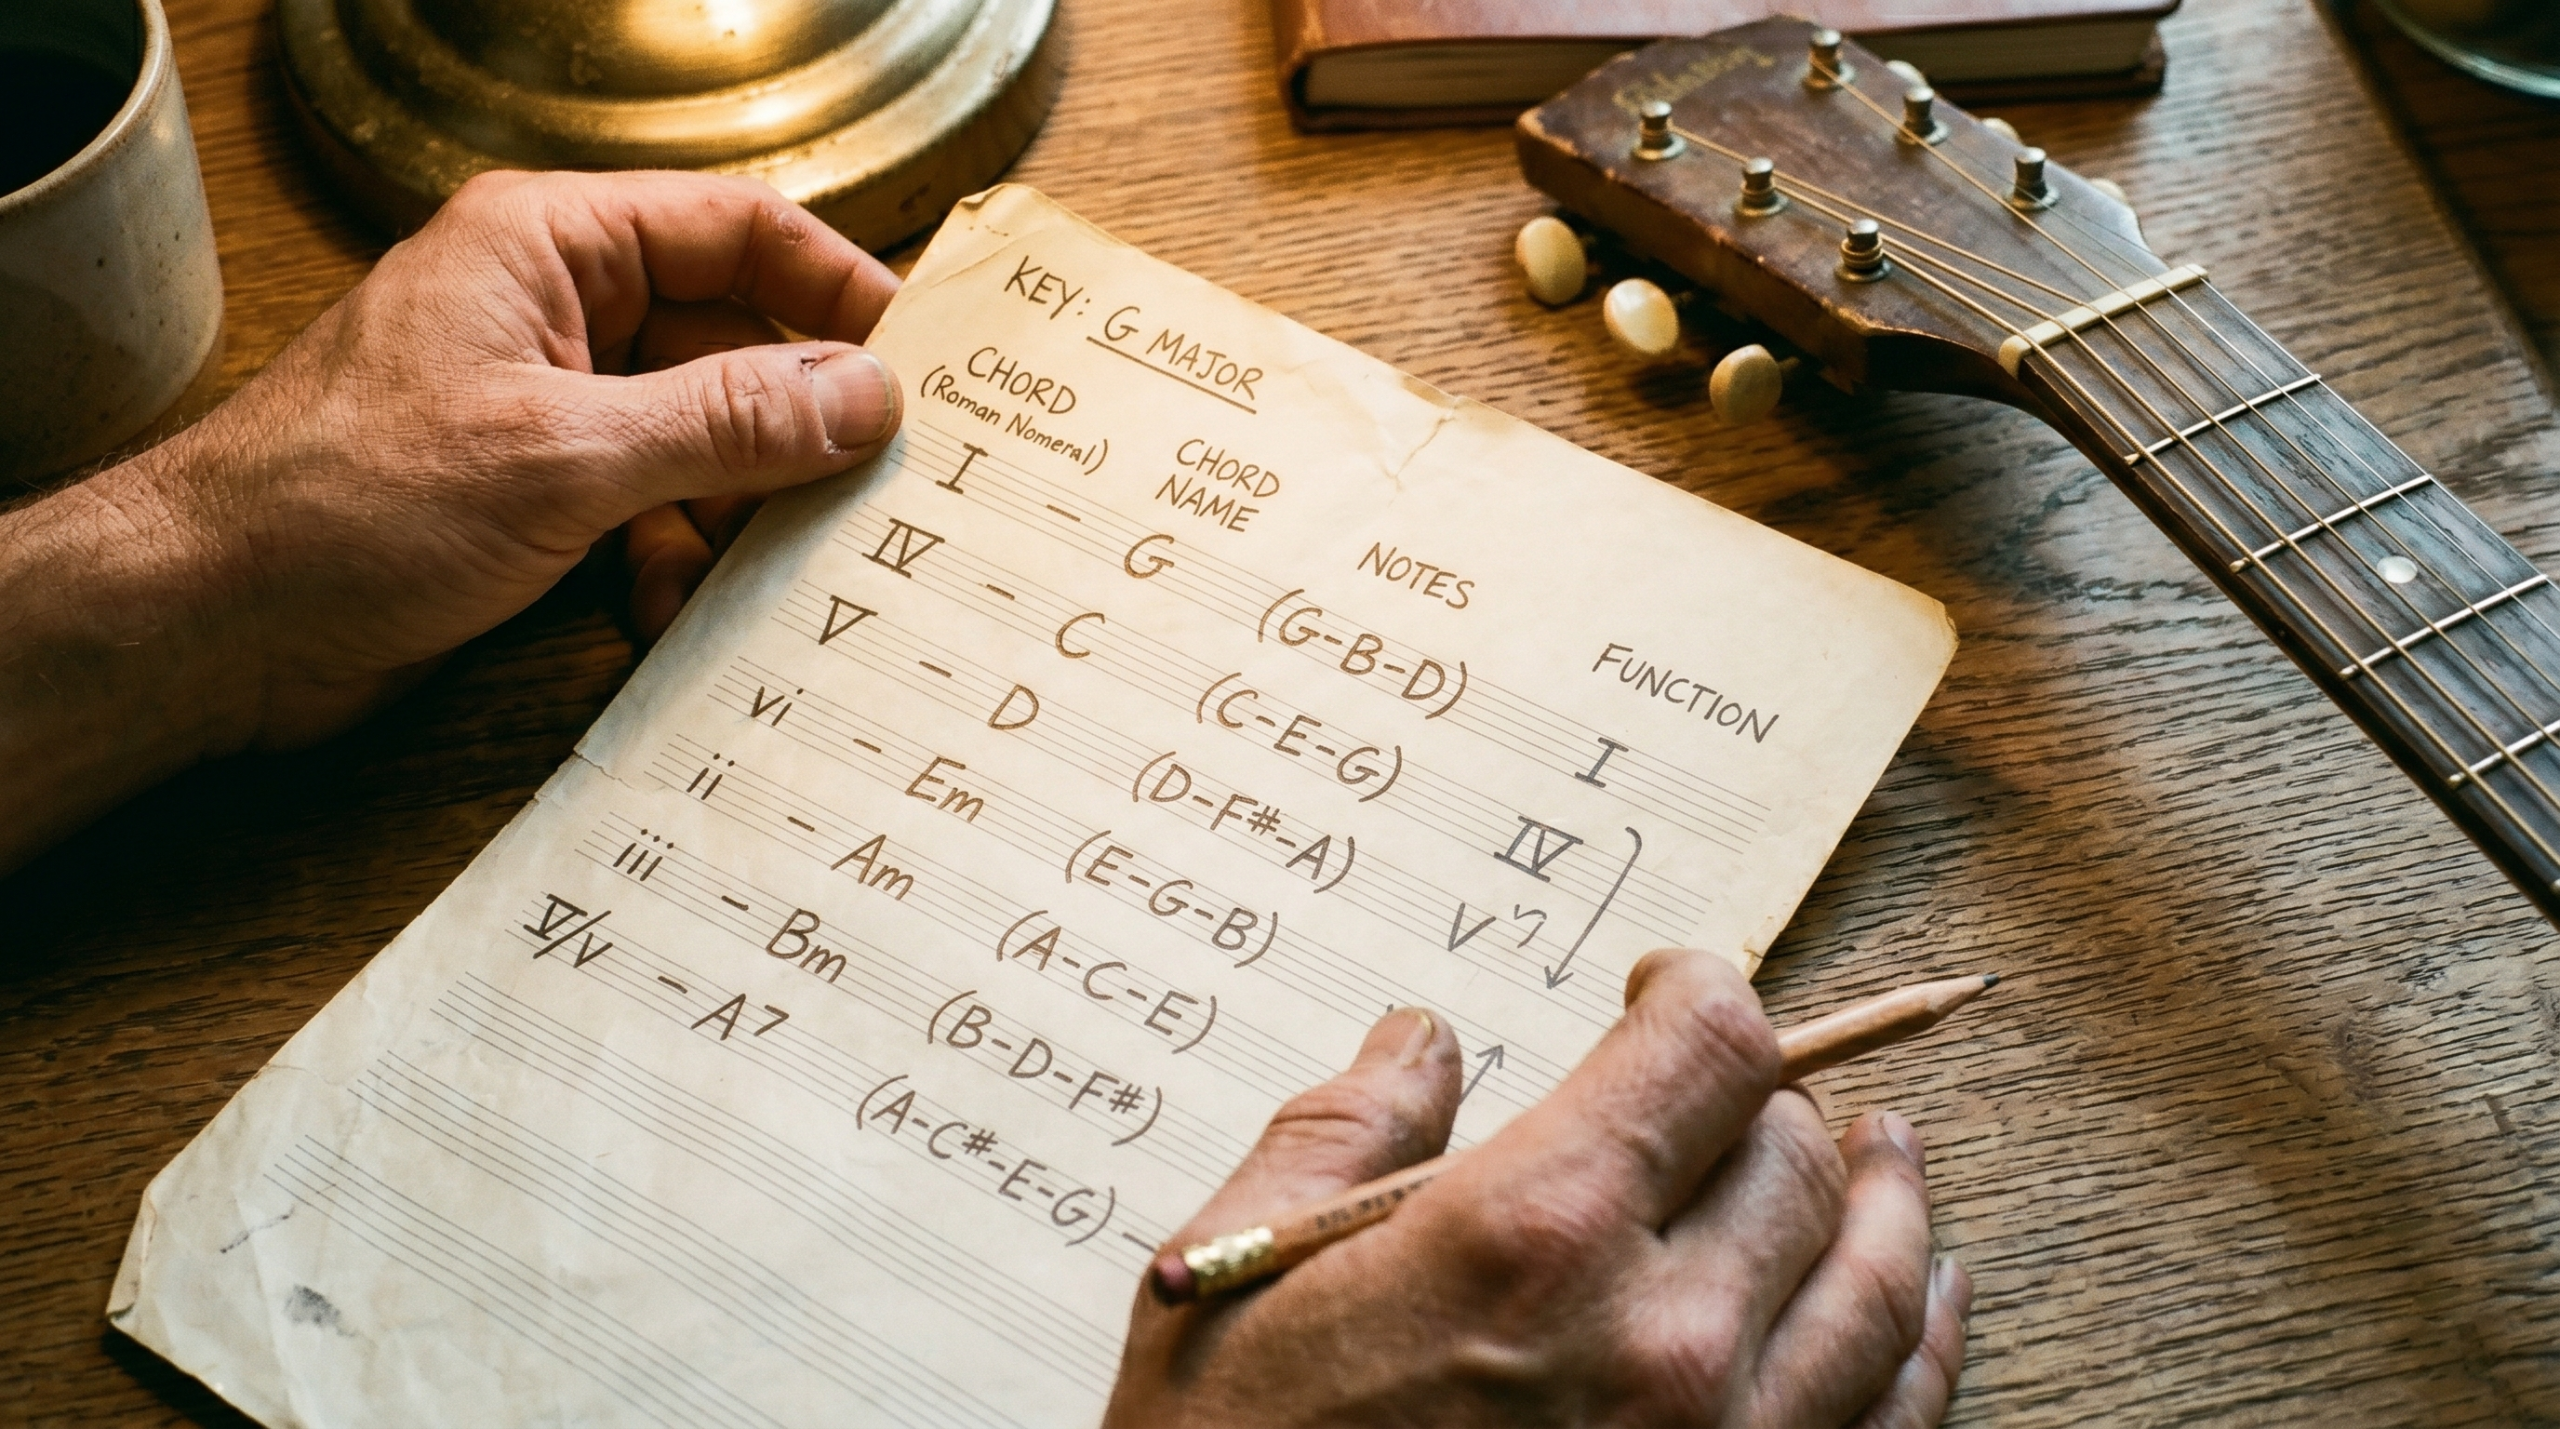 KEY: G MAJOR
CHORD
(Roman Nomeral)
CHORD
NAME
NOTES
FUNCTION
I - G (G-B-D) I
IV - C (C-E-G) IV
V - D (D-F#-A) V
vi - Em (E-G-B)
ii - Am (A-C-E)
iii - Bm (B-D-F#)
V/V - A7 (A-C#-E-G) -